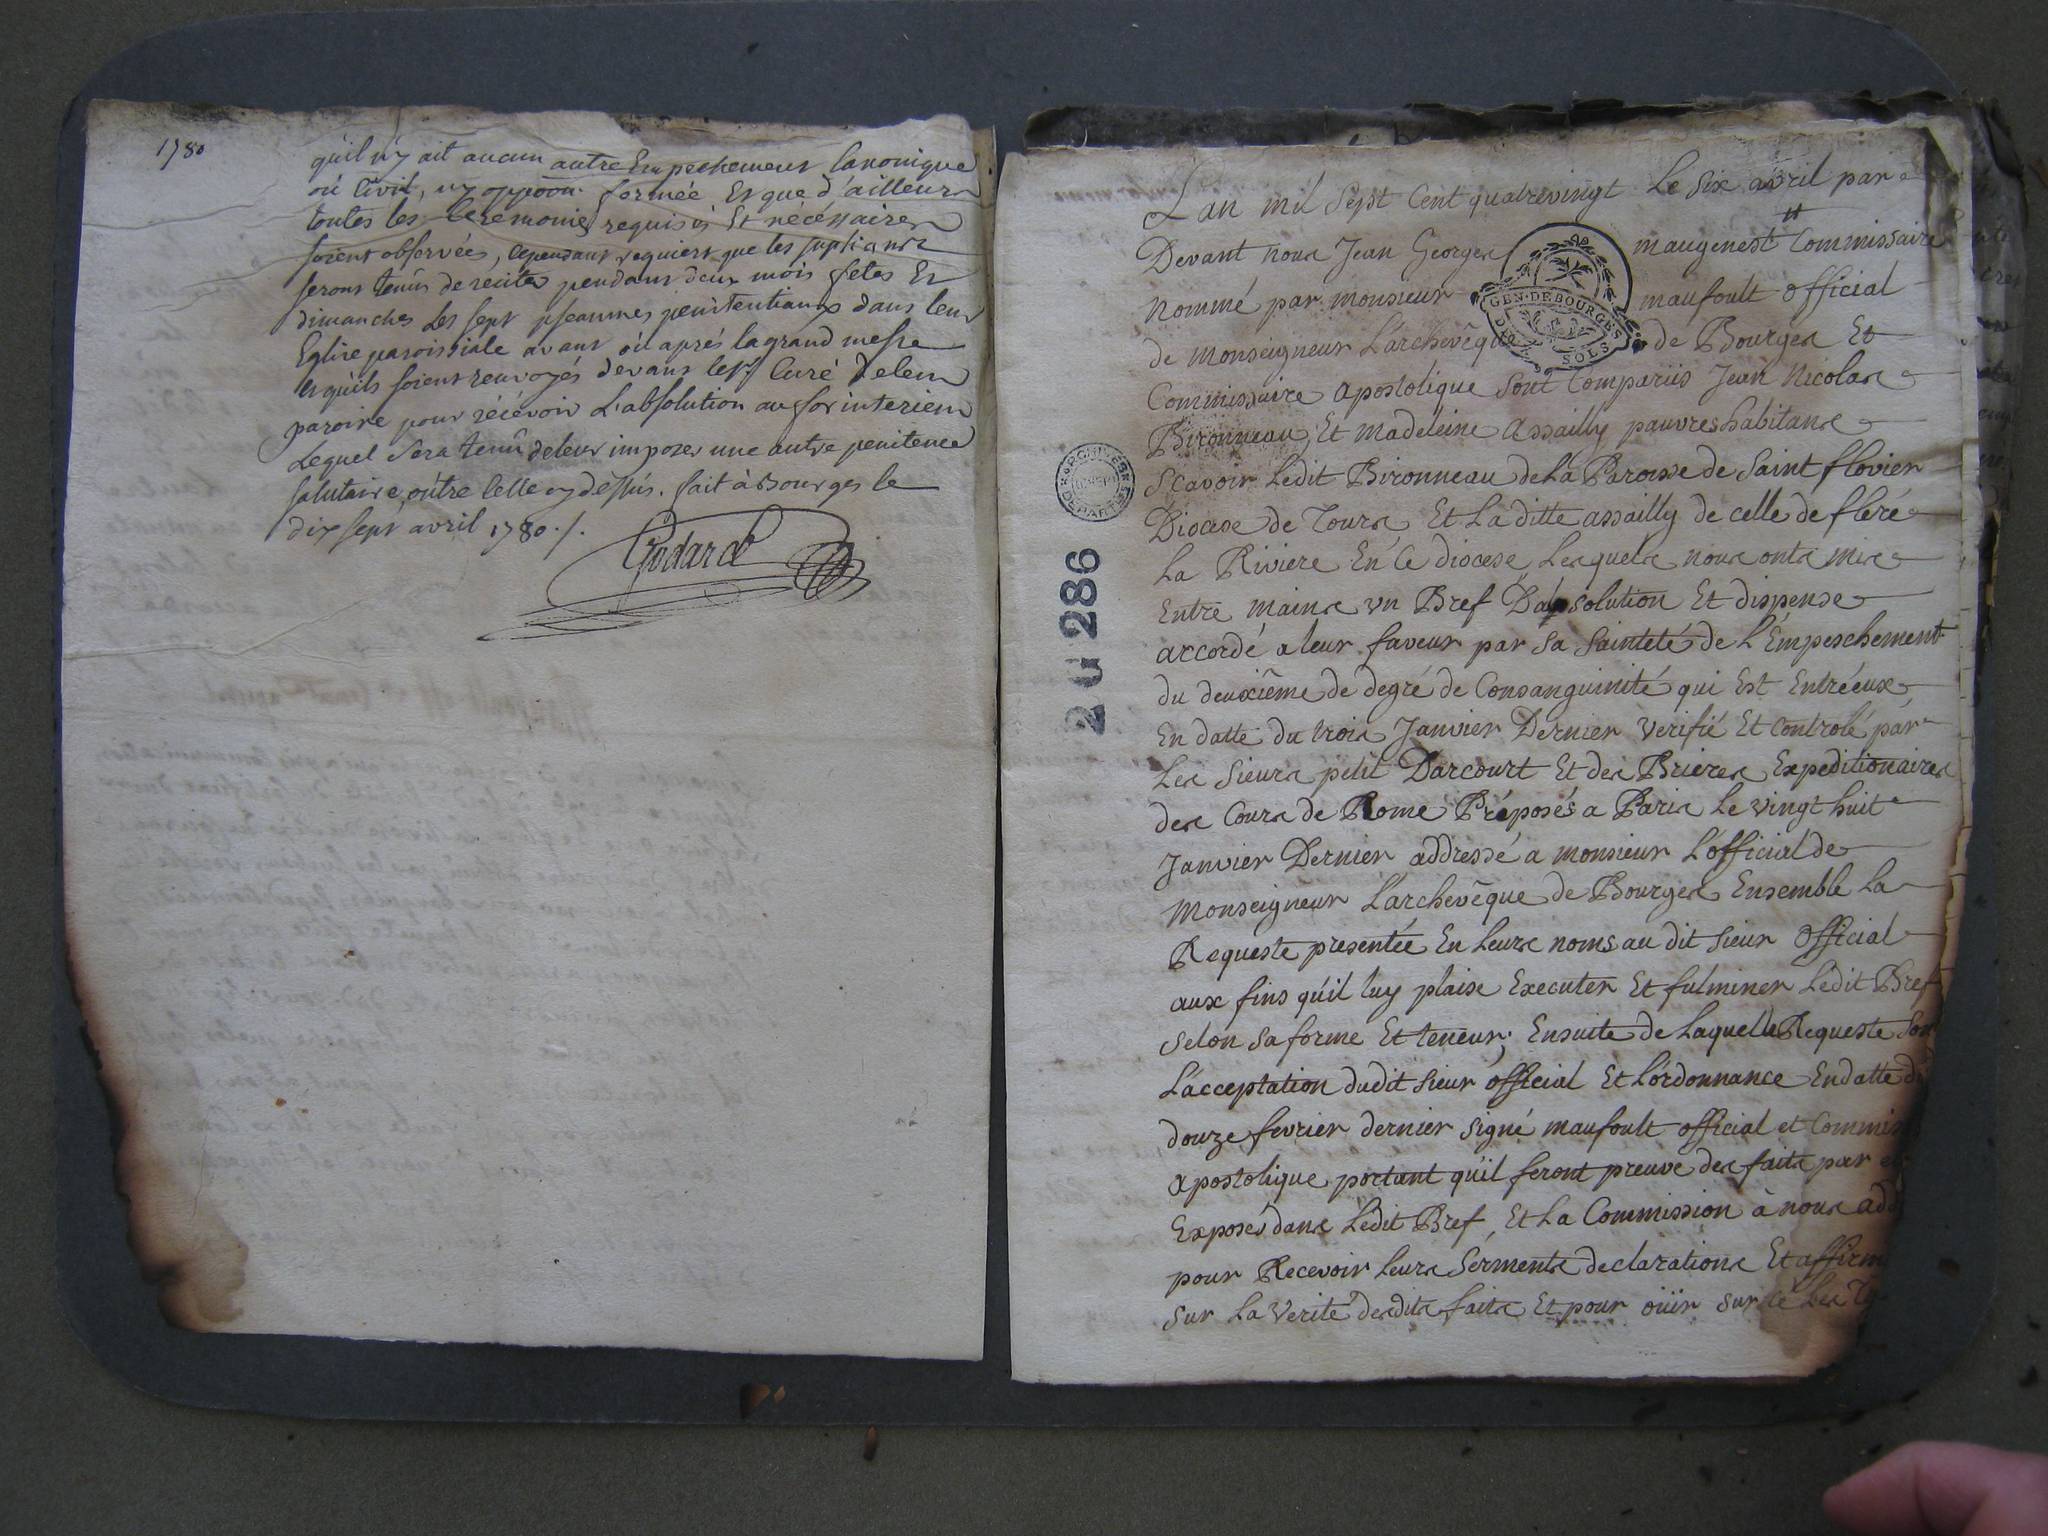 1780
qu'il n'y ait aucun autre Empechement Canonique
où Civil, ny oppoõn formée Et que d'ailleurs
toutes les Ceremonies requises Et nécéssaires
soient observées, cependant requiert que les supliants
seront tenûs de reciter pendant deux mois fetes Et
dimanches Les sept pseaumes penitentiaux dans leur
Eglise paroissiale avant où aprés la grand messe
et qu'ils soient renvoyés devant le Sr Curé de leur
paroisse pour récévoir L'absolution au for interieur
Lequel sera tenû de leur imposer une autre penitence
salutaire, oûtre celle cy dessus. fait à Bourges le
dix sept avril 1780 ./.
Godard
Lan mil Sept Cent quatrevingt Le Six avril par
Devant nous Jean Georges maugenest Commissaire
nommé par monsieur maufoult official
de Monseigneur L'archevêque de Bourges Et
Commissaire apostolique sont Comparûs Jean Nicolas
Bironneau, Et Madeleine Assailly pauvres habitans
Scavoir Ledit Bironneau de la Paroisse de Saint flovier
Diocese de Tours, Et La ditte assailly de celle de fleré
La Riviere En ce diocese, Lesquels nous onts mis
Entre mains un Bref D'absolution Et dispense
accordé a leur faveur par sa Sainteté de l'Empeschement
du deuxiême de degré de Consanguinité qui Est Entré eux
En datte du trois Janvier Dernier Verifié Et Controlé par
Les Sieurs petit Darcourt Et des Brieres Expeditionaires
des Cours de Rome Préposés a Paris Le vingt huit
Janvier Dernier addressé a monsieur L'official de
Monseigneur L'archevêque de Bourges Ensemble La
Requeste presentée En Leurs noms au dit Sieur official
aux fins qu'il luy plaise Executer Et fulminer Ledit Bref
Selon Sa forme Et teneur; Ensuite de Laquelle Requeste Sont
L'acceptation dudit Sieur official Et L'ordonnance En datte du
douze fevrier dernier Signé maufoult official et Commis
apostolique portant qu'il feront preuve des faits par
Exposés dans Ledit Bref, Et La Commission à nous add
pour Recevoir Leurs Serments declarations Et affirm
Sur La Verité desdits faits Et pour oüir Sur ce Les
GEN·DE BOURGES
SOLS
ARCHIVES
DEPARTES
2 U 286